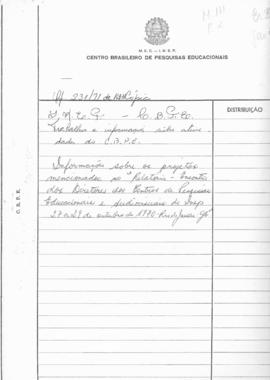 M.E.C. - I.N.E.P.
CENTRO BRASILEIRO DE PESQUISAS EDUCACIONAIS
231/71
DISTRIBUIÇÃO
Trabalhos e informações sobre ativi
dades do C.B.P.E.
Informação sobre os projetos
mencionados no "Relatório - Encontro
dos Diretores dos Centros de Pesquisas
Educacionais e Audiovisuais do Inep
27 a 29 de outubro de 1970 - Rio de Janeiro Gb"
C. B. P. E.